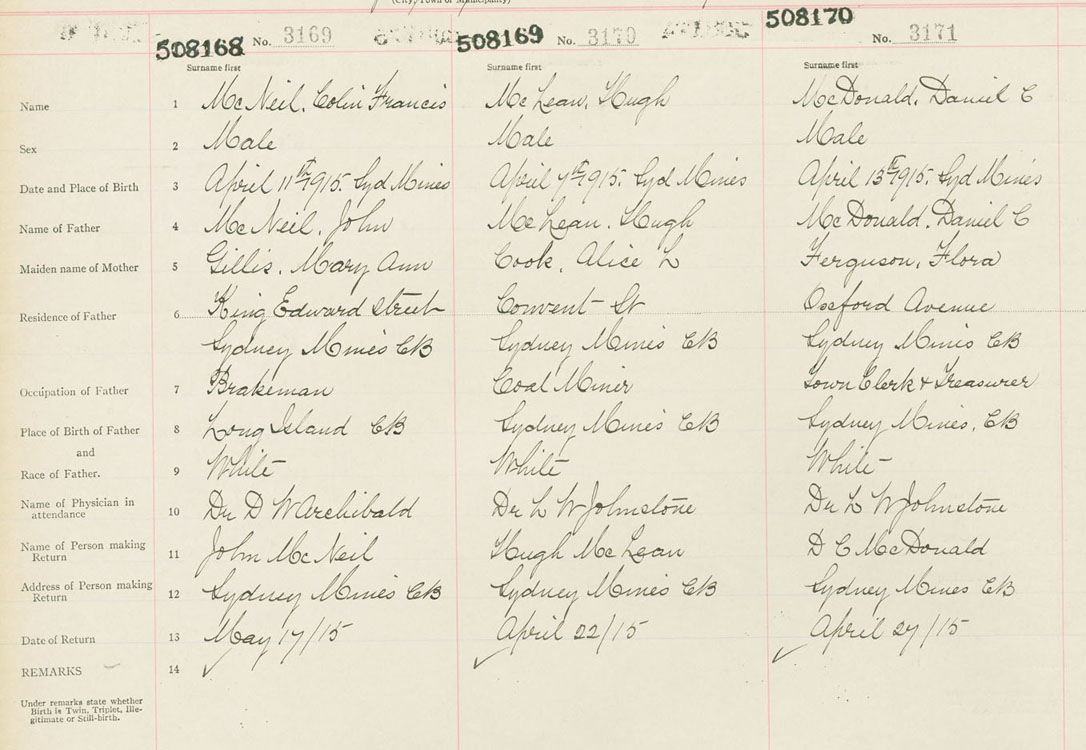 (City, Town or Municipality)
508168 No. 3169 508169 No. 3170 508170 No. 3171
Surname first Surname first Surname first
Name 1 McNeil, Colin Francis McLean, Hugh McDonald, Daniel C
Sex 2 Male Male Male
Date and Place of Birth 3 April 11th 1915. Syd Mines April 7th 1915. Syd Mines April 13th 1915. Syd Mines
Name of Father 4 McNeil, John McLean, Hugh McDonald, Daniel C
Maiden name of Mother 5 Gillis, Mary Ann Cook, Alice L Ferguson, Flora
Residence of Father 6 King Edward Street Convent St Oxford Avenue
Sydney Mines CB Sydney Mines CB Sydney Mines CB
Occupation of Father 7 Brakeman Coal Miner Town Clerk & Treasurer
Place of Birth of Father 8 Long Island CB Sydney Mines CB Sydney Mines, CB
and
Race of Father. 9 White White White
Name of Physician in attendance 10 Dr D W Archibald Dr L W Johnstone Dr L W Johnstone
Name of Person making Return 11 John McNeil Hugh McLean D C McDonald
Address of Person making Return 12 Sydney Mines CB Sydney Mines CB Sydney Mines CB
Date of Return 13 May 17/15 April 22/15 April 27/15
REMARKS 14
Under remarks state whether
Birth is Twin, Triplet, Ille-
gitimate or Still-birth.